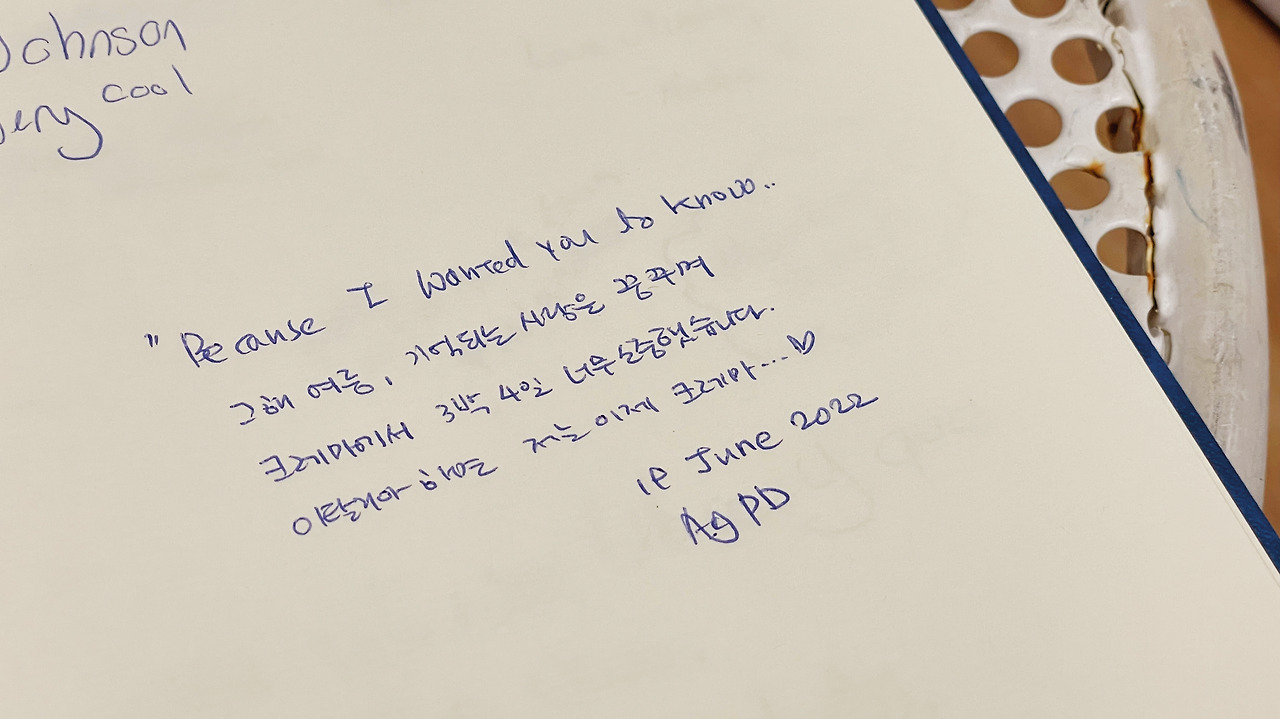 Johnson
very cool
" Because I wanted you to know..
그해 여름, 기억되는 사랑을 꿈꾸며
크레마에서 3박 4일 너무 소중했습니다.
이탈리아 하면 저는 이제 크레마...♡
June 2022
Ag PD